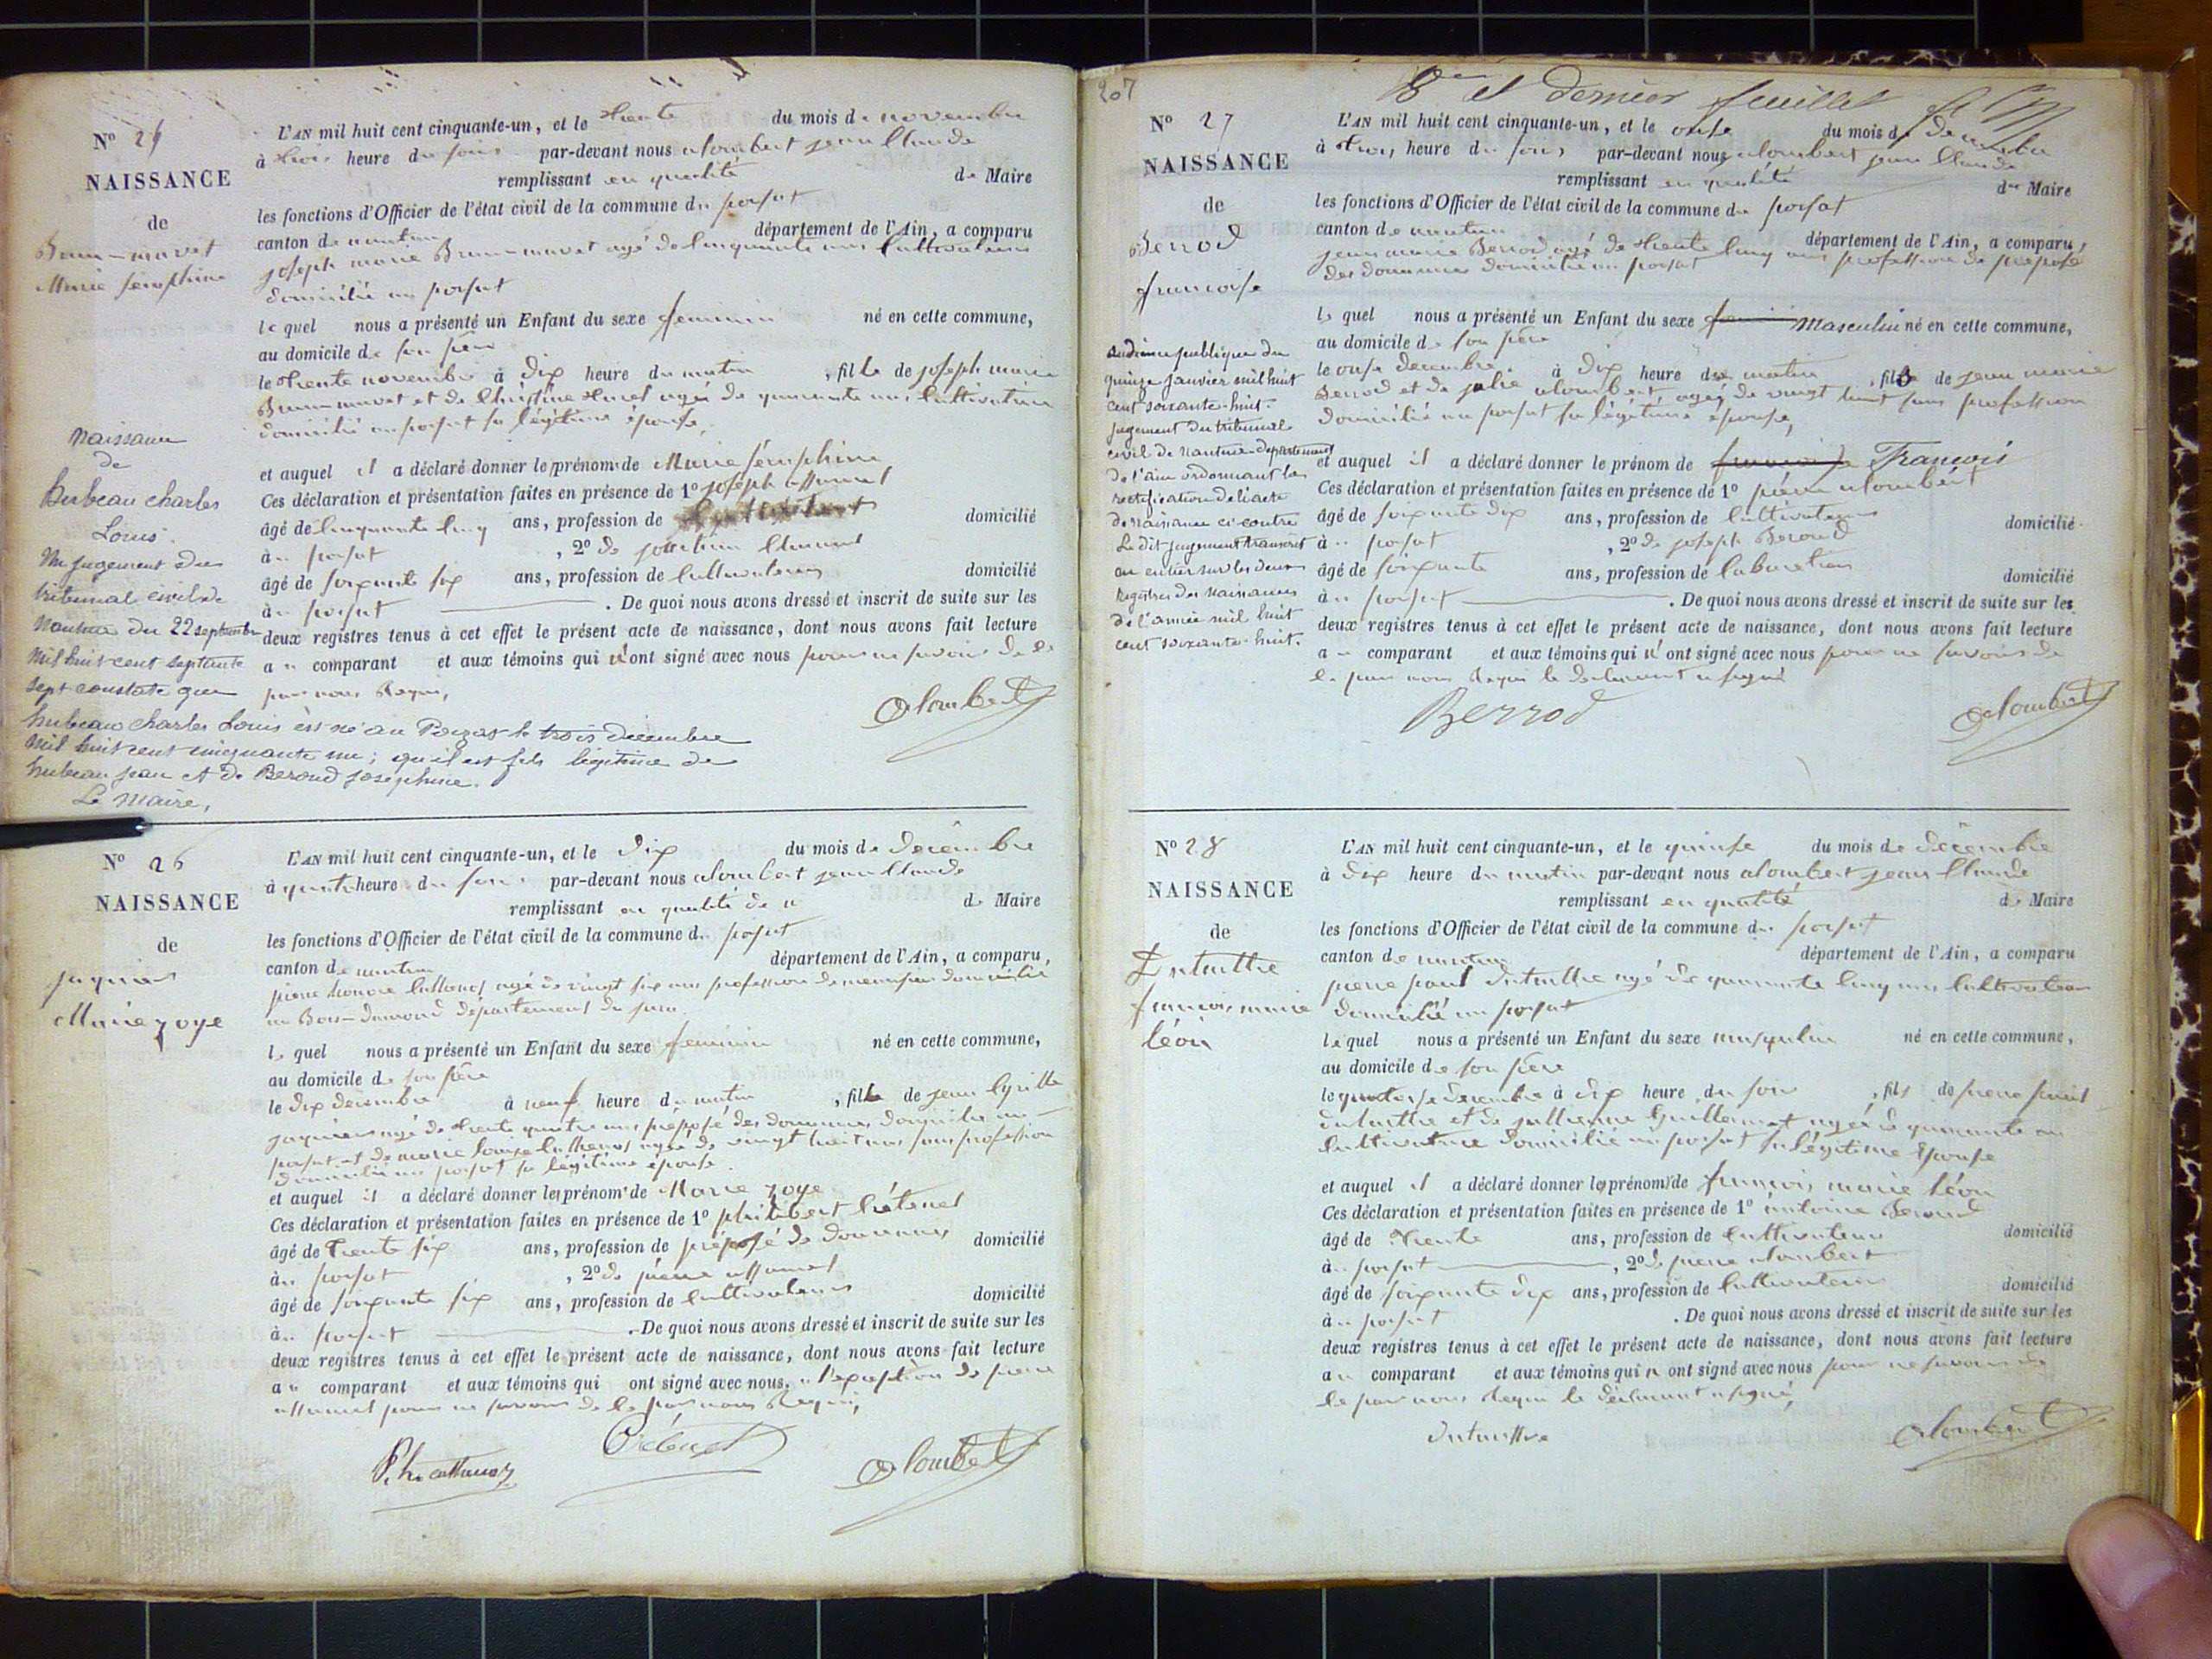 N° 25
NAISSANCE
de
Brun-mavet
Marie séraphine
L'AN mil huit cent cinquante-un, et le trente du mois de novembre
à trois heure du soir par-devant nous alombert jean Claude
remplissant en qualité de Maire
les fonctions d'Officier de l'état civil de la commune du poisat
canton de nantua département de l'Ain, a comparu
joseph marie Brun-mavet agé de cinquante ans Cultivateur
domicilié au poisat
lequel nous a présenté un Enfant du sexe feminin né en cette commune,
au domicile de son père
le trente novembre à dix heure du matin, fille de joseph marie
Brun-mavet et de Christine agée de quarante ans Cultivatrice
domicilié au poisat sa légitime épouse,
et auquel il a déclaré donner les prénoms de Marie séraphine
Ces déclaration et présentation faites en présence de 1° joseph
âgé de cinquante cinq ans, profession de domicilié
au poisat, 2° de
âgé de soixante six ans, profession de Cultivateur domicilié
au poisat. De quoi nous avons dressé et inscrit de suite sur les
deux registres tenus à cet effet le présent acte de naissance, dont nous avons fait lecture
au comparant et aux témoins qui n'ont signé avec nous pour ne savoir de ce
par nous Requis,
alombert
naissance
de
hubeau charles
Louis.
Un jugement du
tribunal civil de
Nantua du 22 septembre
mil huit cent septante
sept constate que
hubeau charles Louis est né au Poizat le trois décembre
mil huit cent cinquante un; qu'il est fils légitime de
hubeau jean et de Beroud joséphine.
Le Maire,
N° 26
NAISSANCE
de
jaquier
Marie zoye
L'AN mil huit cent cinquante-un, et le dix du mois de décembre
à quatre heure du soir par-devant nous alombert jean Claude
remplissant en qualité de Maire
les fonctions d'Officier de l'état civil de la commune du poisat
canton de nantua département de l'Ain, a comparu,
pierre honoré agé de vingt six ans profession de menuisier domicilié
au Bois-damond département du jura.
lequel nous a présenté un Enfant du sexe feminin né en cette commune,
au domicile de son père
le dix décembre à neuf heure du matin, fille de jean Cyrille
jaquier agé de trente quatre ans préposé des douanes domicilié au
poisat et de marie louise agée de vingt huit ans sans profession
domicilié au poisat sa légitime épouse.
et auquel il a déclaré donner les prénoms de Marie zoye
Ces déclaration et présentation faites en présence de 1° philibert
âgé de trente six ans, profession de préposé de douannes domicilié
au poisat, 2° de pierre
âgé de soixante six ans, profession de Cultivateur domicilié
au poisat. De quoi nous avons dressé et inscrit de suite sur les
deux registres tenus à cet effet le présent acte de naissance, dont nous avons fait lecture
au comparant et aux témoins qui ont signé avec nous, à l'exception de pierre
pour ne savoir de ce par nous Requis,
alombert
207
8me et dernier feuillet
N° 27
NAISSANCE
de
Berrod
francoise
L'AN mil huit cent cinquante-un, et le onse du mois de décembre
à trois heure du soir par-devant nous alombert jean Claude
remplissant en qualité de Maire
les fonctions d'Officier de l'état civil de la commune du poisat
canton de nantua département de l'Ain, a comparu,
jean marie Berrod agé de trente cinq ans profession de préposé
des douannes domicilié au poisat
lequel nous a présenté un Enfant du sexe masculin né en cette commune,
au domicile de son père
le onse decembre à dix heure du matin, fils de jean marie
Berrod et de julie alombert agée de vingt huit sans profession
domicilié au poisat sa légitime épouse,
et auquel il a déclaré donner le prénom de francoise François
Ces déclaration et présentation faites en présence de 1° pierre alombert
âgé de soixante dix ans, profession de Cultivateur domicilié
au poisat, 2° de joseph Beroud
âgé de soixante ans, profession de laboureur domicilié
au poisat. De quoi nous avons dressé et inscrit de suite sur les
deux registres tenus à cet effet le présent acte de naissance, dont nous avons fait lecture
au comparant et aux témoins qui n'ont signé avec nous pour ne savoir de
ce par nous Requis le déclarant a signé
Berrod
alombert
audience publique du
quinze janvier mil huit
cent soixante-huit.
jugement du tribunal
civil de nantua département
de l'ain ordonnant la
rectification de l'acte
de naissance ci-contre
Le dit jugement transcrit
en entier sur les deux
Registres des naissances
de l'année mil huit
cent soixante-huit.
N° 28
NAISSANCE
de
francois marie
léon
L'AN mil huit cent cinquante-un, et le quinse du mois de décembre
à dix heure du matin par-devant nous alombert jean Claude
remplissant en qualité de Maire
les fonctions d'Officier de l'état civil de la commune du poisat
canton de nantua département de l'Ain, a comparu
pierre paul agé de quarante cinq ans Cultivateur
domicilié au poisat
lequel nous a présenté un Enfant du sexe masqulin né en cette commune,
au domicile de son père
le quatorse decembre à dix heure du soir, fils de pierre paul
et de agée de quarante an
Cultivatrice domicilié au poisat sa légitime épouse
et auquel il a déclaré donner les prénoms de francois marie léon
Ces déclaration et présentation faites en présence de 1° antoine Beroud
âgé de trente ans, profession de Cultivateur domicilié
au poisat, 2° de pierre alombert
âgé de soixante dix ans, profession de Cultivateur domicilié
au poisat. De quoi nous avons dressé et inscrit de suite sur les
deux registres tenus à cet effet le présent acte de naissance, dont nous avons fait lecture
au comparant et aux témoins qui n ont signé avec nous pour ne savoir de
ce par nous Requis le déclarant a signé,
alombert